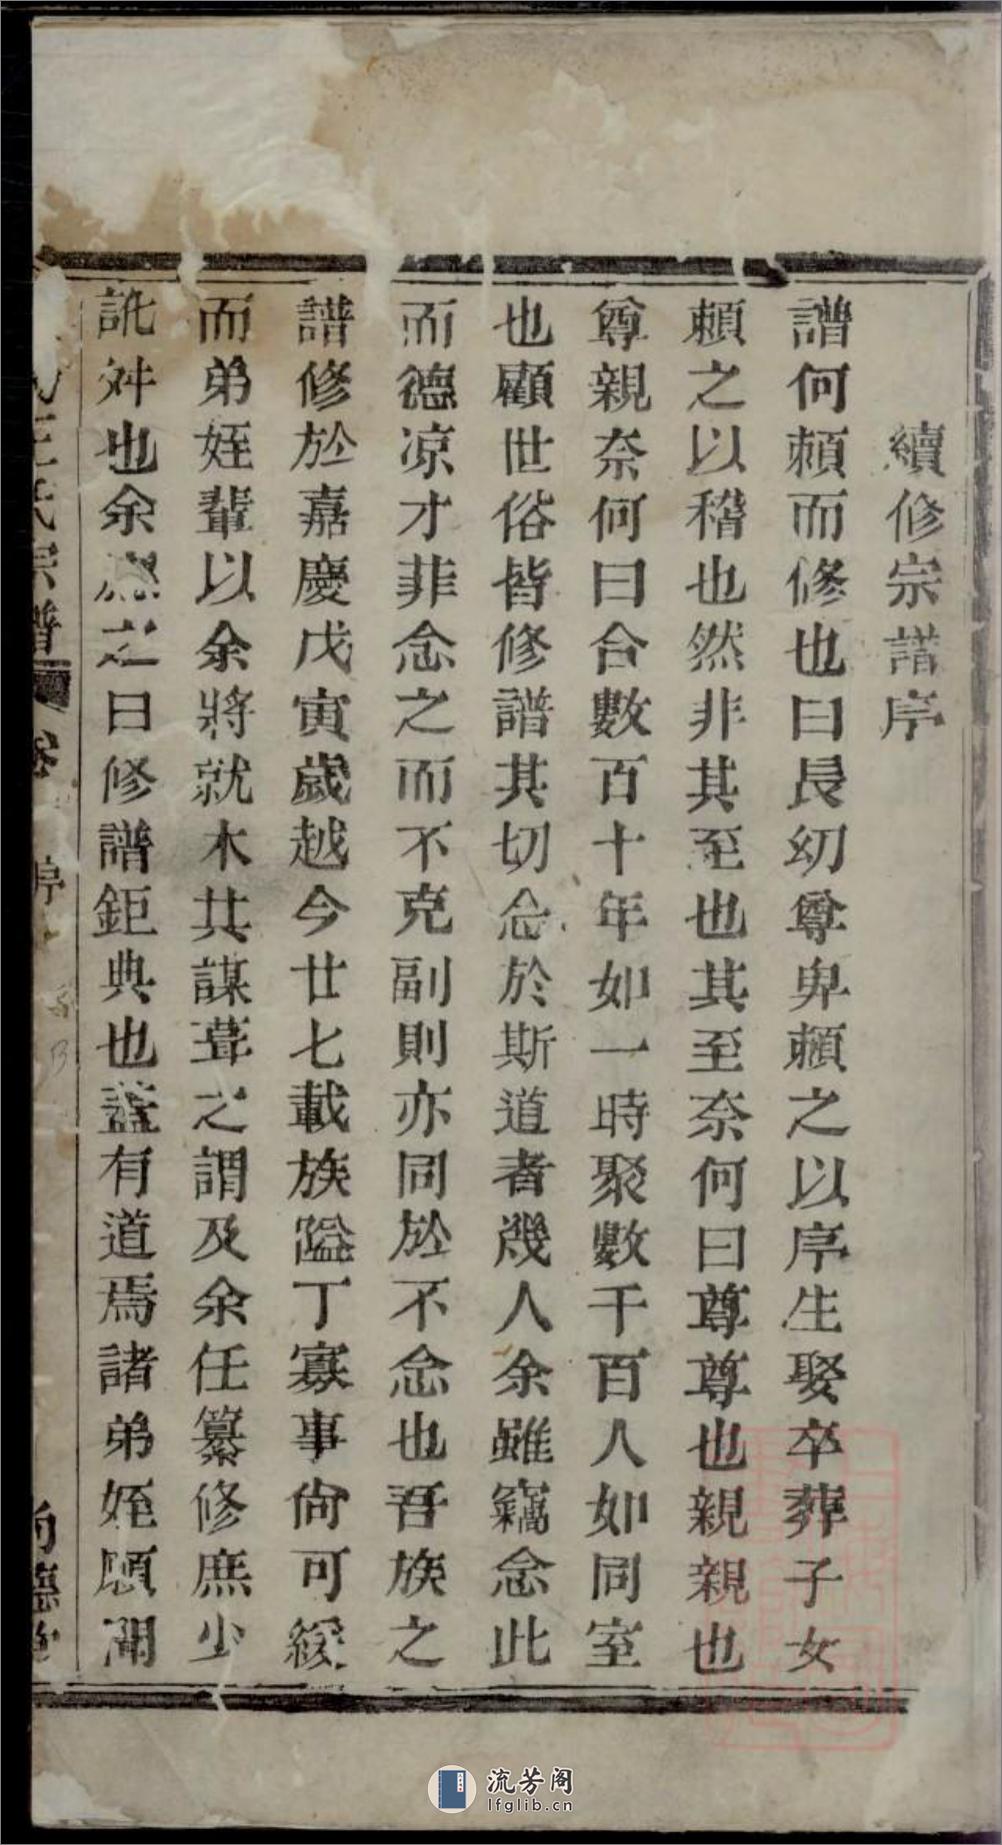 續修宗譜序
譜何賴而修也曰長幼尊卑賴之以序生娶卒葬子女
賴之以稽也然非其至也其至奈何曰尊尊也親親也
尊親奈何曰合數百十年如一時聚數千百人如同室
也顧世俗皆修譜其切念於斯道者幾人余雖竊念此
而德凉才菲念之而不克副則亦同於不念也吾族之
譜修於嘉慶戊寅歲越今廿七載族隘丁寡事尙可緩
而弟姪輩以余將就木共謀葺之謂及余任纂修庶少
訛舛也余應之曰修譜鉅典也蓋有道焉諸弟姪願聞
王氏宗譜 卷 序
尙德堂
流芳阁
lfglib.cn